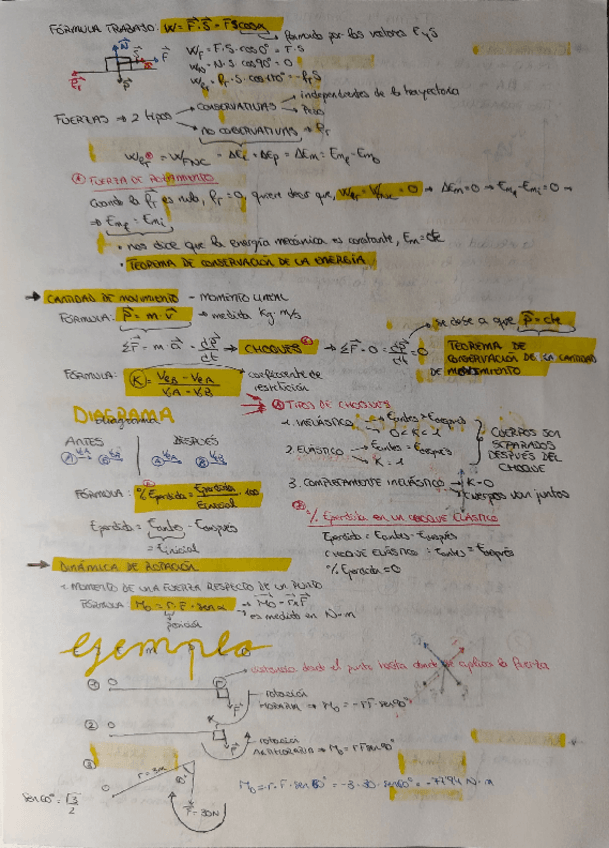 FÓRMULA TRABAJO: W = F·S = FScosα formado por los vectores F y S
N S F Fr P
WF = F·S·cos0° = F·S
WN = N·S·cos90° = 0
WFr = Fr·S·cos180° = -Fr S
FUERZAS → 2 tipos
CONSERVATIVAS → independientes de la trayectoria
→ Peso
NO CONSERVATIVAS → Fr
WFr = WFNC = ΔEc + ΔEp = ΔEm = Emf - Em0
① FUERZA DE ROZAMIENTO
Cuando la Fr es nula, Fr = 0, quiere decir que, WFr = WFNC = 0 → ΔEm = 0 → Emf - Emi = 0 →
→ Emf = Emi
• nos dice que la energía mecánica es constante, Em = cte
• TEOREMA DE CONSERVACIÓN DE LA ENERGÍA
→ CANTIDAD DE MOVIMIENTO - MOMENTO LINEAL
FÓRMULA: p = m·v → medida kg·m/s
ΣF = m·a = dp/dt → CHOQUES → ΣF = 0 = dp/dt = 0
se debe a que p = cte
TEOREMA DE CONSERVACIÓN DE LA CANTIDAD DE MOVIMIENTO
FÓRMULA: K = VeB - VeA / VA - VB
coeficiente de restitución
DIAGRAMA
Diagrama
ANTES DESPUÉS
A B A B
① TIPOS DE CHOQUES
1. INELÁSTICO → Eantes > Edespués
→ 0 < K < 1
2. ELÁSTICO → Eantes = Edespués
→ K = 1
CUERPOS SON SEPARADOS DESPUÉS DEL CHOQUE
3. COMPLETAMENTE INELÁSTICO → K = 0
→ cuerpos van juntos
FÓRMULA: % Eperdida = Eperdida / Einicial · 100
Eperdida = Eantes - Edespués
= Einicial
② % Eperdida EN UN CHOQUE ELÁSTICO
Eperdida = Eantes - Edespués
CHOQUE ELÁSTICO: Eantes = Edespués
% Eperdida = 0
→ DINÁMICA DE ROTACIÓN
• MOMENTO DE UNA FUERZA RESPECTO DE UN PUNTO
FÓRMULA: M0 = r·F·senα → M0 = r∧F
→ es medido en N·m
posición
ejemplo
E E M P L O
distancia desde el punto hasta donde se aplica la fuerza
① O F
rotación HORARIA → M0 = -rFsen90°
② O F
rotación ANTIHORARIA → M0 = rFsen90°
③ O r = 3m 60° F = 30N
M0 = r·F·sen60° = -3·30·sen60° = -77'94 N·m
sen60° = √3/2